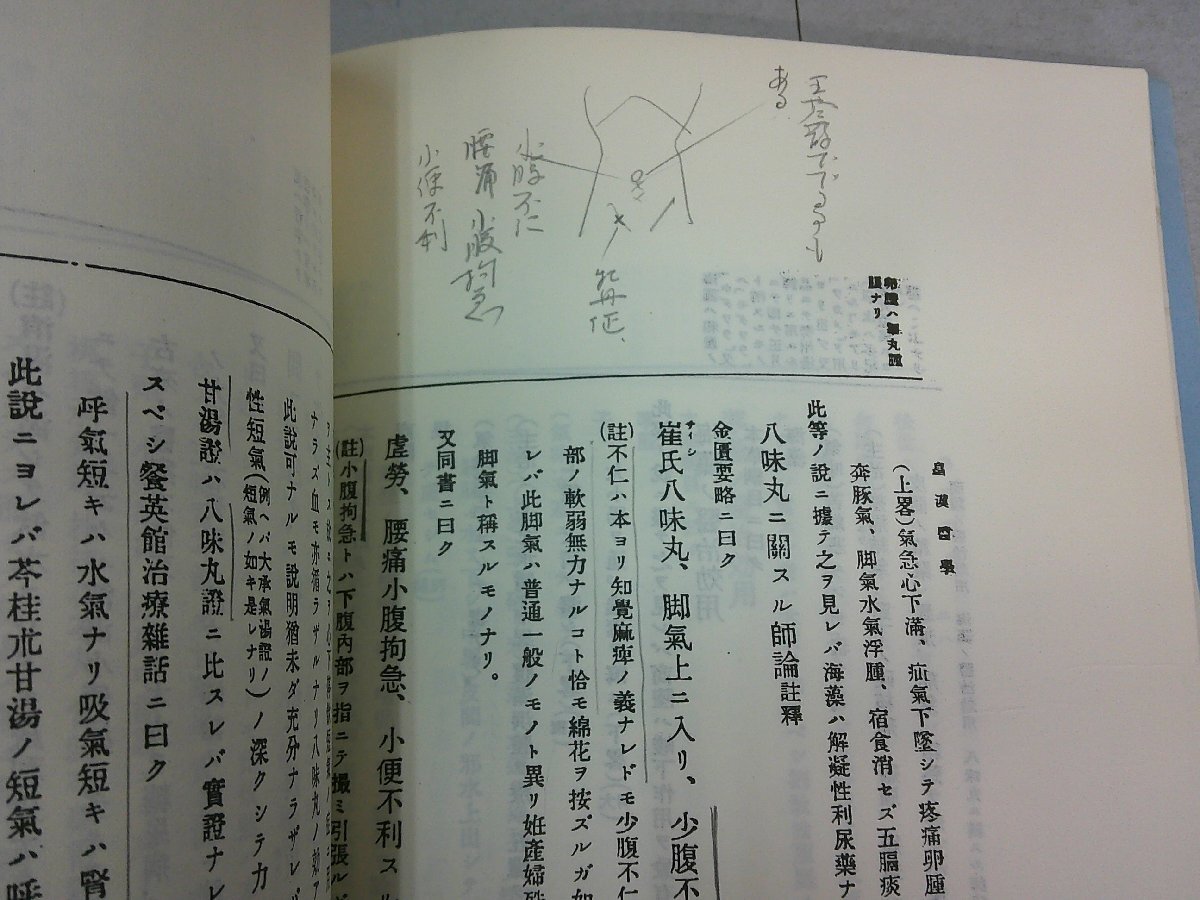 ある
小腹不仁
腰痛 小腹拘急
小便不利
牡丹
卵腫ハ睾丸腫
腫ナリ
皇漢醫學
(上畧)氣急心下滿、疝氣下墜シテ疼痛卵腫
奔豚氣、脚氣水氣浮腫、宿食消セズ五膈痰
此等ノ說ニ據テ之ヲ見レバ海藻ハ解凝性利尿藥ナ
八味丸ニ關スル師論註釋
金匱要略ニ曰ク
崔氏八味丸、脚氣上ニ入リ、少腹不
(註不仁ハ本ヨリ知覺麻痺ノ義ナレドモ少腹不仁
部ノ軟弱無力ナルコト恰モ綿花ヲ按ズルガ如
レバ此脚氣ハ普通一般ノモノト異リ姙產婦
脚氣ト稱スルモノナリ。
又同書ニ曰ク
虛勞、腰痛小腹拘急、小便不利スル
(註小腹拘急トハ下腹內部ヲ指ニテ撮ミ引張ル
ナラズ血モ亦循ラザルナリ八味丸ノ
此說可ナルモ說明猶未ダ充分ナラザレ
性短氣(例ヘバ大承氣湯證ノ短氣ノ如キ是レナリ)ノ深クシテ力
甘湯證ハ八味丸證ニ比スレバ實證ナレ
スベシ餐英館治療雜話ニ曰ク
呼氣短キハ水氣ナリ吸氣短キハ腎
此說ニヨレバ苓桂朮甘湯ノ短氣ハ呼